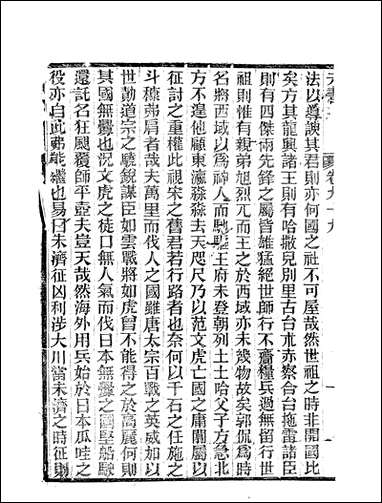 法以尊諛其君則亦何國之社不可屋哉然世祖之時非開國比
矣方其龍興諸王則有哈撒兒別里古台朮赤察合台拖雷諸臣
則有四傑兩先鋒之屬皆雄猛絕世師行不齎糧兵過無留行世
祖則惟有親弟旭烈兀而王之於西域亦未幾物故郭侃爲時
名將西域以爲神人而馳驅王府未登朝列土土哈父子方急北
方不遑他顧東瀛淼淼去天咫尺乃以范文虎亡國之庸闒屬以
征討之重權此視宋之舊君若行路者也奈何以千石之任施之
斗穅弗肩者哉夫萬里而伐人之國雖唐太宗百戰之英威加以
世勣道宗之驍銳謀臣如雲戰將如虎曾不能得之於高麗何則
其國無釁也况文虎之徒口無人氣而伐日本無釁之國堅船駿
還託名狂颷覆師平壺夫豈天哉然海外用兵始於日本瓜哇之
役亦自此弗能繼也易曰未濟征凶利涉大川當未濟之時征則
卷九十九